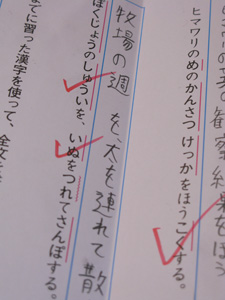 の観察結果をほう
ヒマワリのめのかんさつけっかをほうこくする。
牧場の週を、犬を連れて散
ぼくじょうのしゅういを、いぬをつれてさんぽする。
でに習った漢字を使って、全文